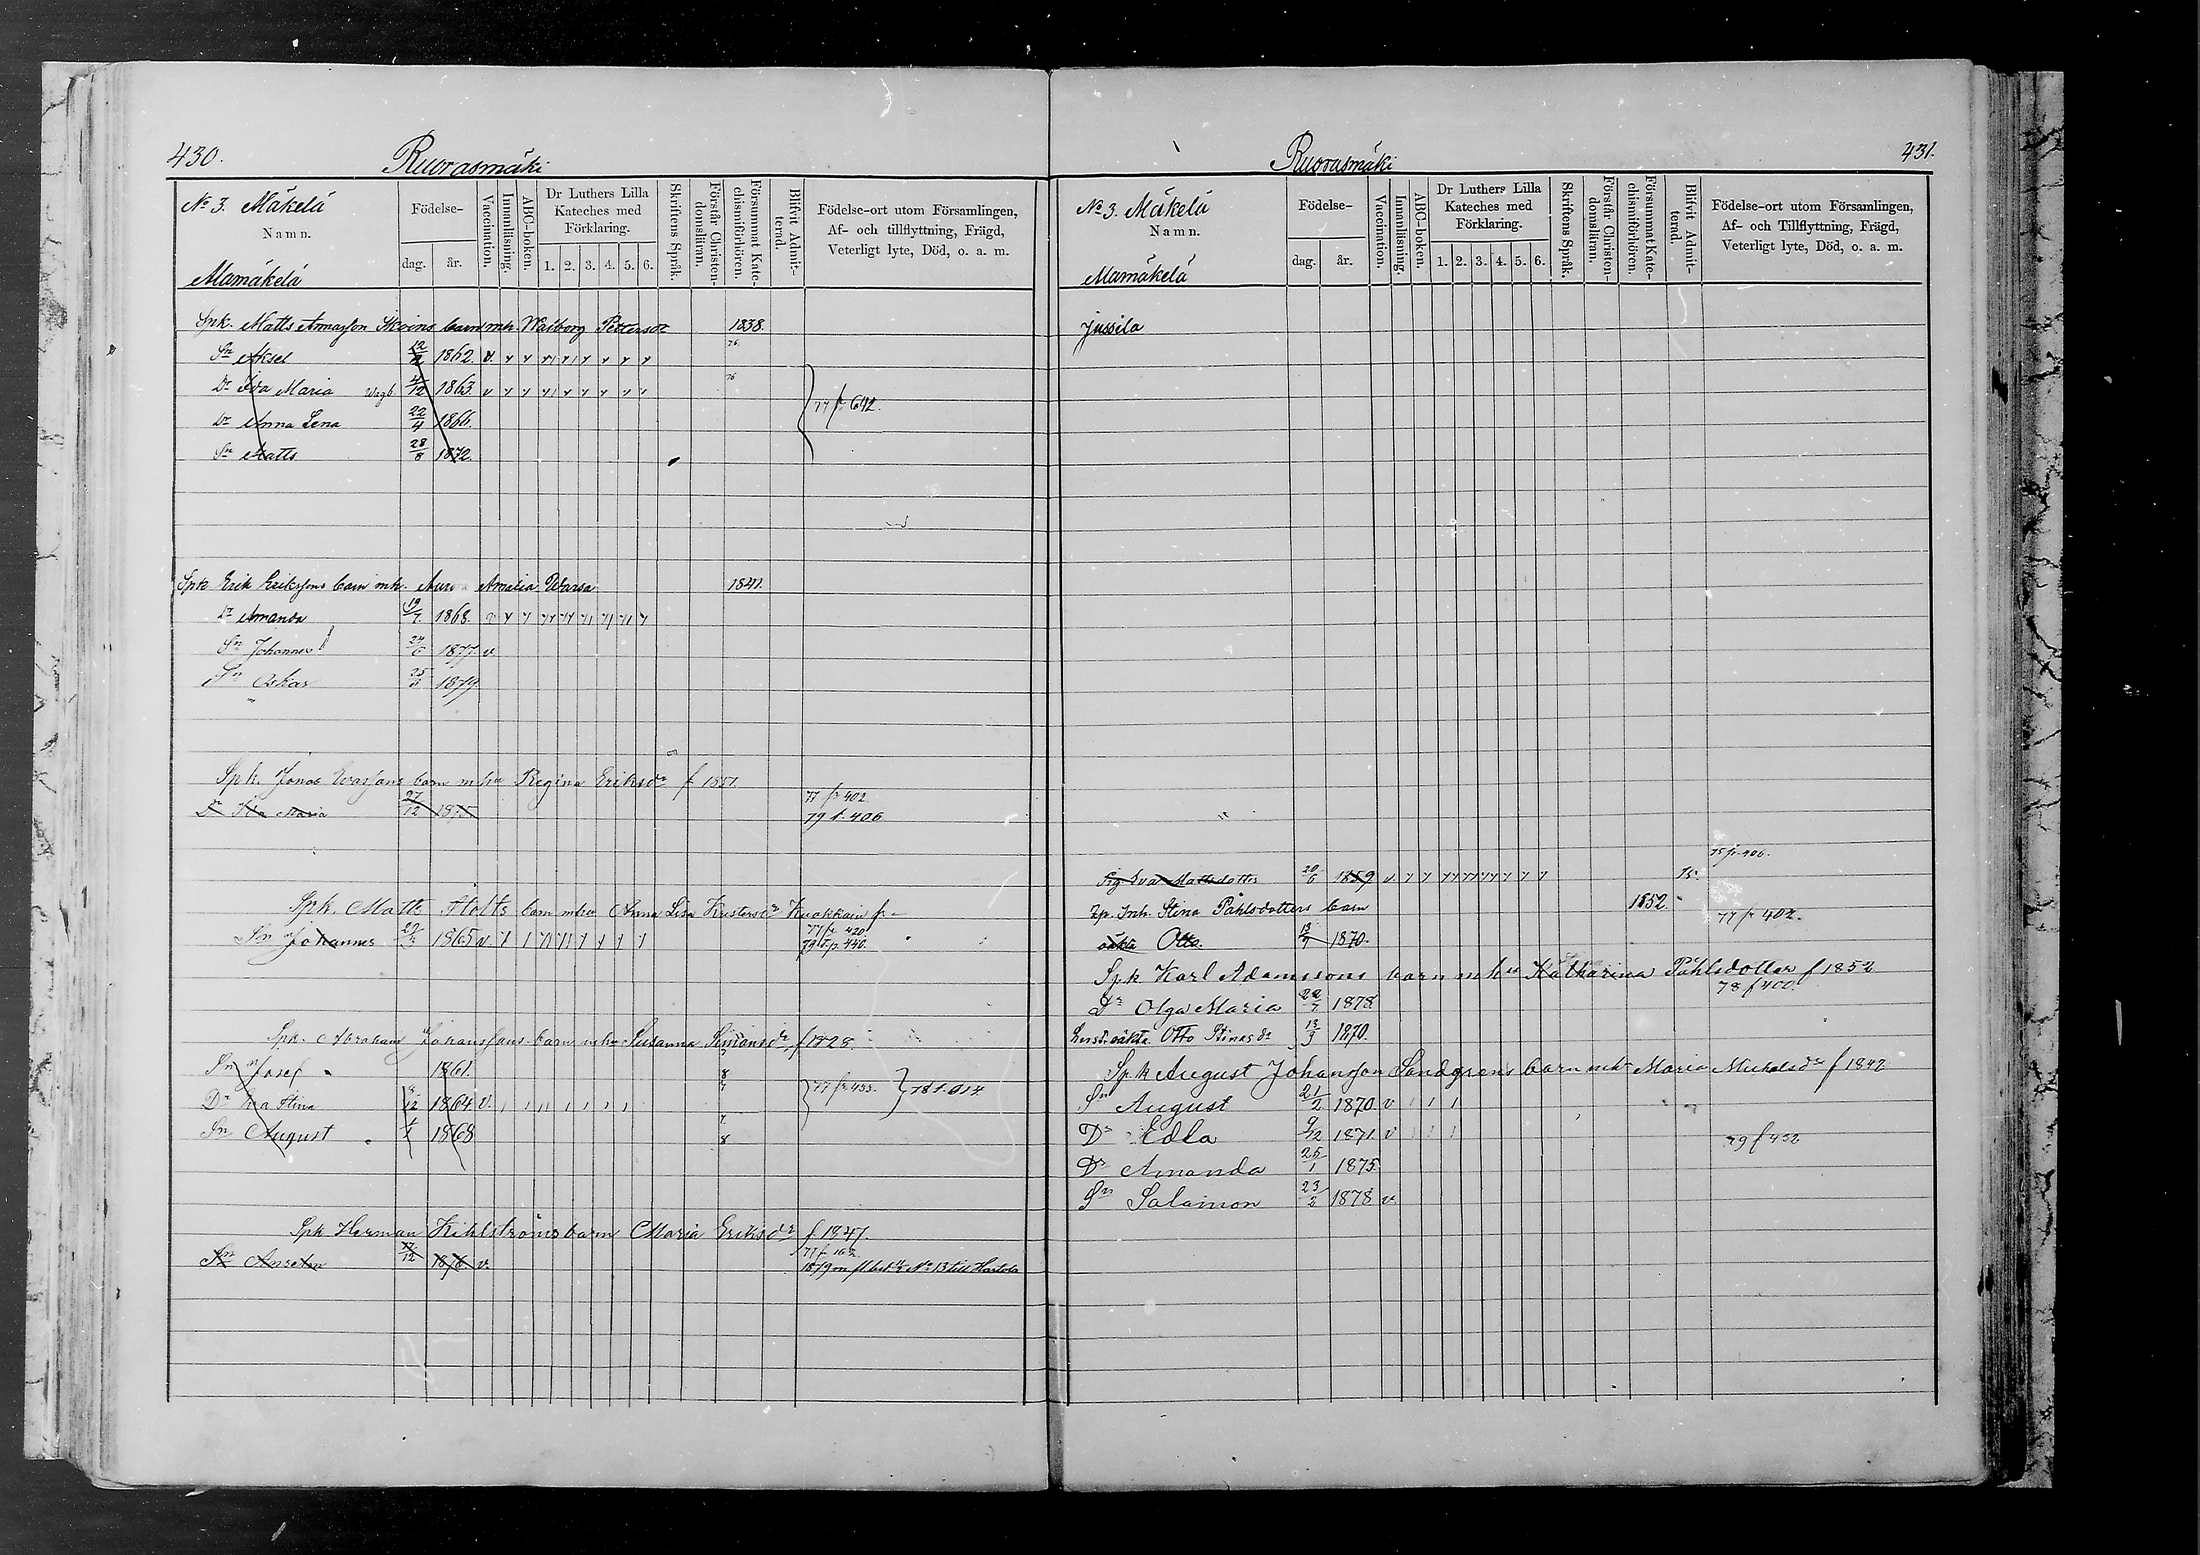 430.
Ruorasmäki
No 3. Mäkelä
Namn.
Mamäkelä
Födelse-
dag. år.
Vaccination.
Innanläsning.
ABC-boken.
Dr Luthers Lilla Kateches med Förklaring.
1. 2. 3. 4. 5. 6.
Skriftens Språk.
Förstår Christendomsläran.
Försummat Katechismiförhören.
Blifvit Admitterad.
Födelse-ort utom Församlingen,
Af- och tillflyttning, Frägd,
Veterligt lyte, Död, o. a. m.
Spk. Matts barn mh. Walborg Pettersdr 1838.
Sn Aksel 12 1862. v. 76.
Dr Ida Maria 4/12 1863. v 76
77 fr 642.
Dr Anna Lena 22/4 1866.
Sn Matts 28/8 1872.
Spk Erik Erikssons barn mh. Amalia Warsa 1841.
Dr Amanda 19/7 1868.
Sn Johannes 24/6 1877. v
Sn Oskar 25 1879.
Spk. Jonas barn mhu Regina Eriksdr f 1851.
77 fr 402.
Dr Ida Maria 27/12 1875 79 t. 406
Spk. Matts Holts barn mhu Anna Lisa
77 fr 420
Sn Johannes 1865 v. 79 t. p. 440.
Spk. Abraham Johanssons barn mhu Susanna Simonsdr f 1828.
Sn Josef 1861. 8
77 fr 433. 78 t. 614.
Dr Eva Stina 12 1864 v. 7
Sn August 1868 8
Spk Herman Kihlströms barn Maria Eriksdr f 1847.
77 fr 162.
Sn Anselm 12 1876 v. 1879 No 13 till Hartola
Ruorasmäki
431.
No 3. Mäkelä
Namn.
Mamäkelä
Födelse-
dag. år.
Vaccination.
Innanläsning.
ABC-boken.
Dr Luthers Lilla Kateches med Förklaring.
1. 2. 3. 4. 5. 6.
Skriftens Språk.
Förstår Christendomsläran.
Försummat Katechismiförhören.
Blifvit Admitterad.
Födelse-ort utom Församlingen,
Af- och Tillflyttning, Frägd,
Veterligt lyte, Död, o. a. m.
Jussila
75 fr. 406.
Pig. Eva Mattsdotter 20/6 1859 v 75.
Inh. Stina Påhlsdotters barn 1852.
77 fr 402.
oäkta Otto. 13/9 1870.
Spk Karl Adamssons barn mhu Katharina Påhlsdotter f 1852
78 f 400.
Dr Olga Maria 22/7 1878.
oäkta Otto Stinasdr 13/9 1870.
Spk August Johansson Sandgrens barn mhr Maria Michelsdr f 1842
Sn August 21/2 1870. v
Dr Edla 9/12 1871. v
79 f 432
Dr Amanda 25/1 1875.
Sn Salamon 23/2 1878 v.